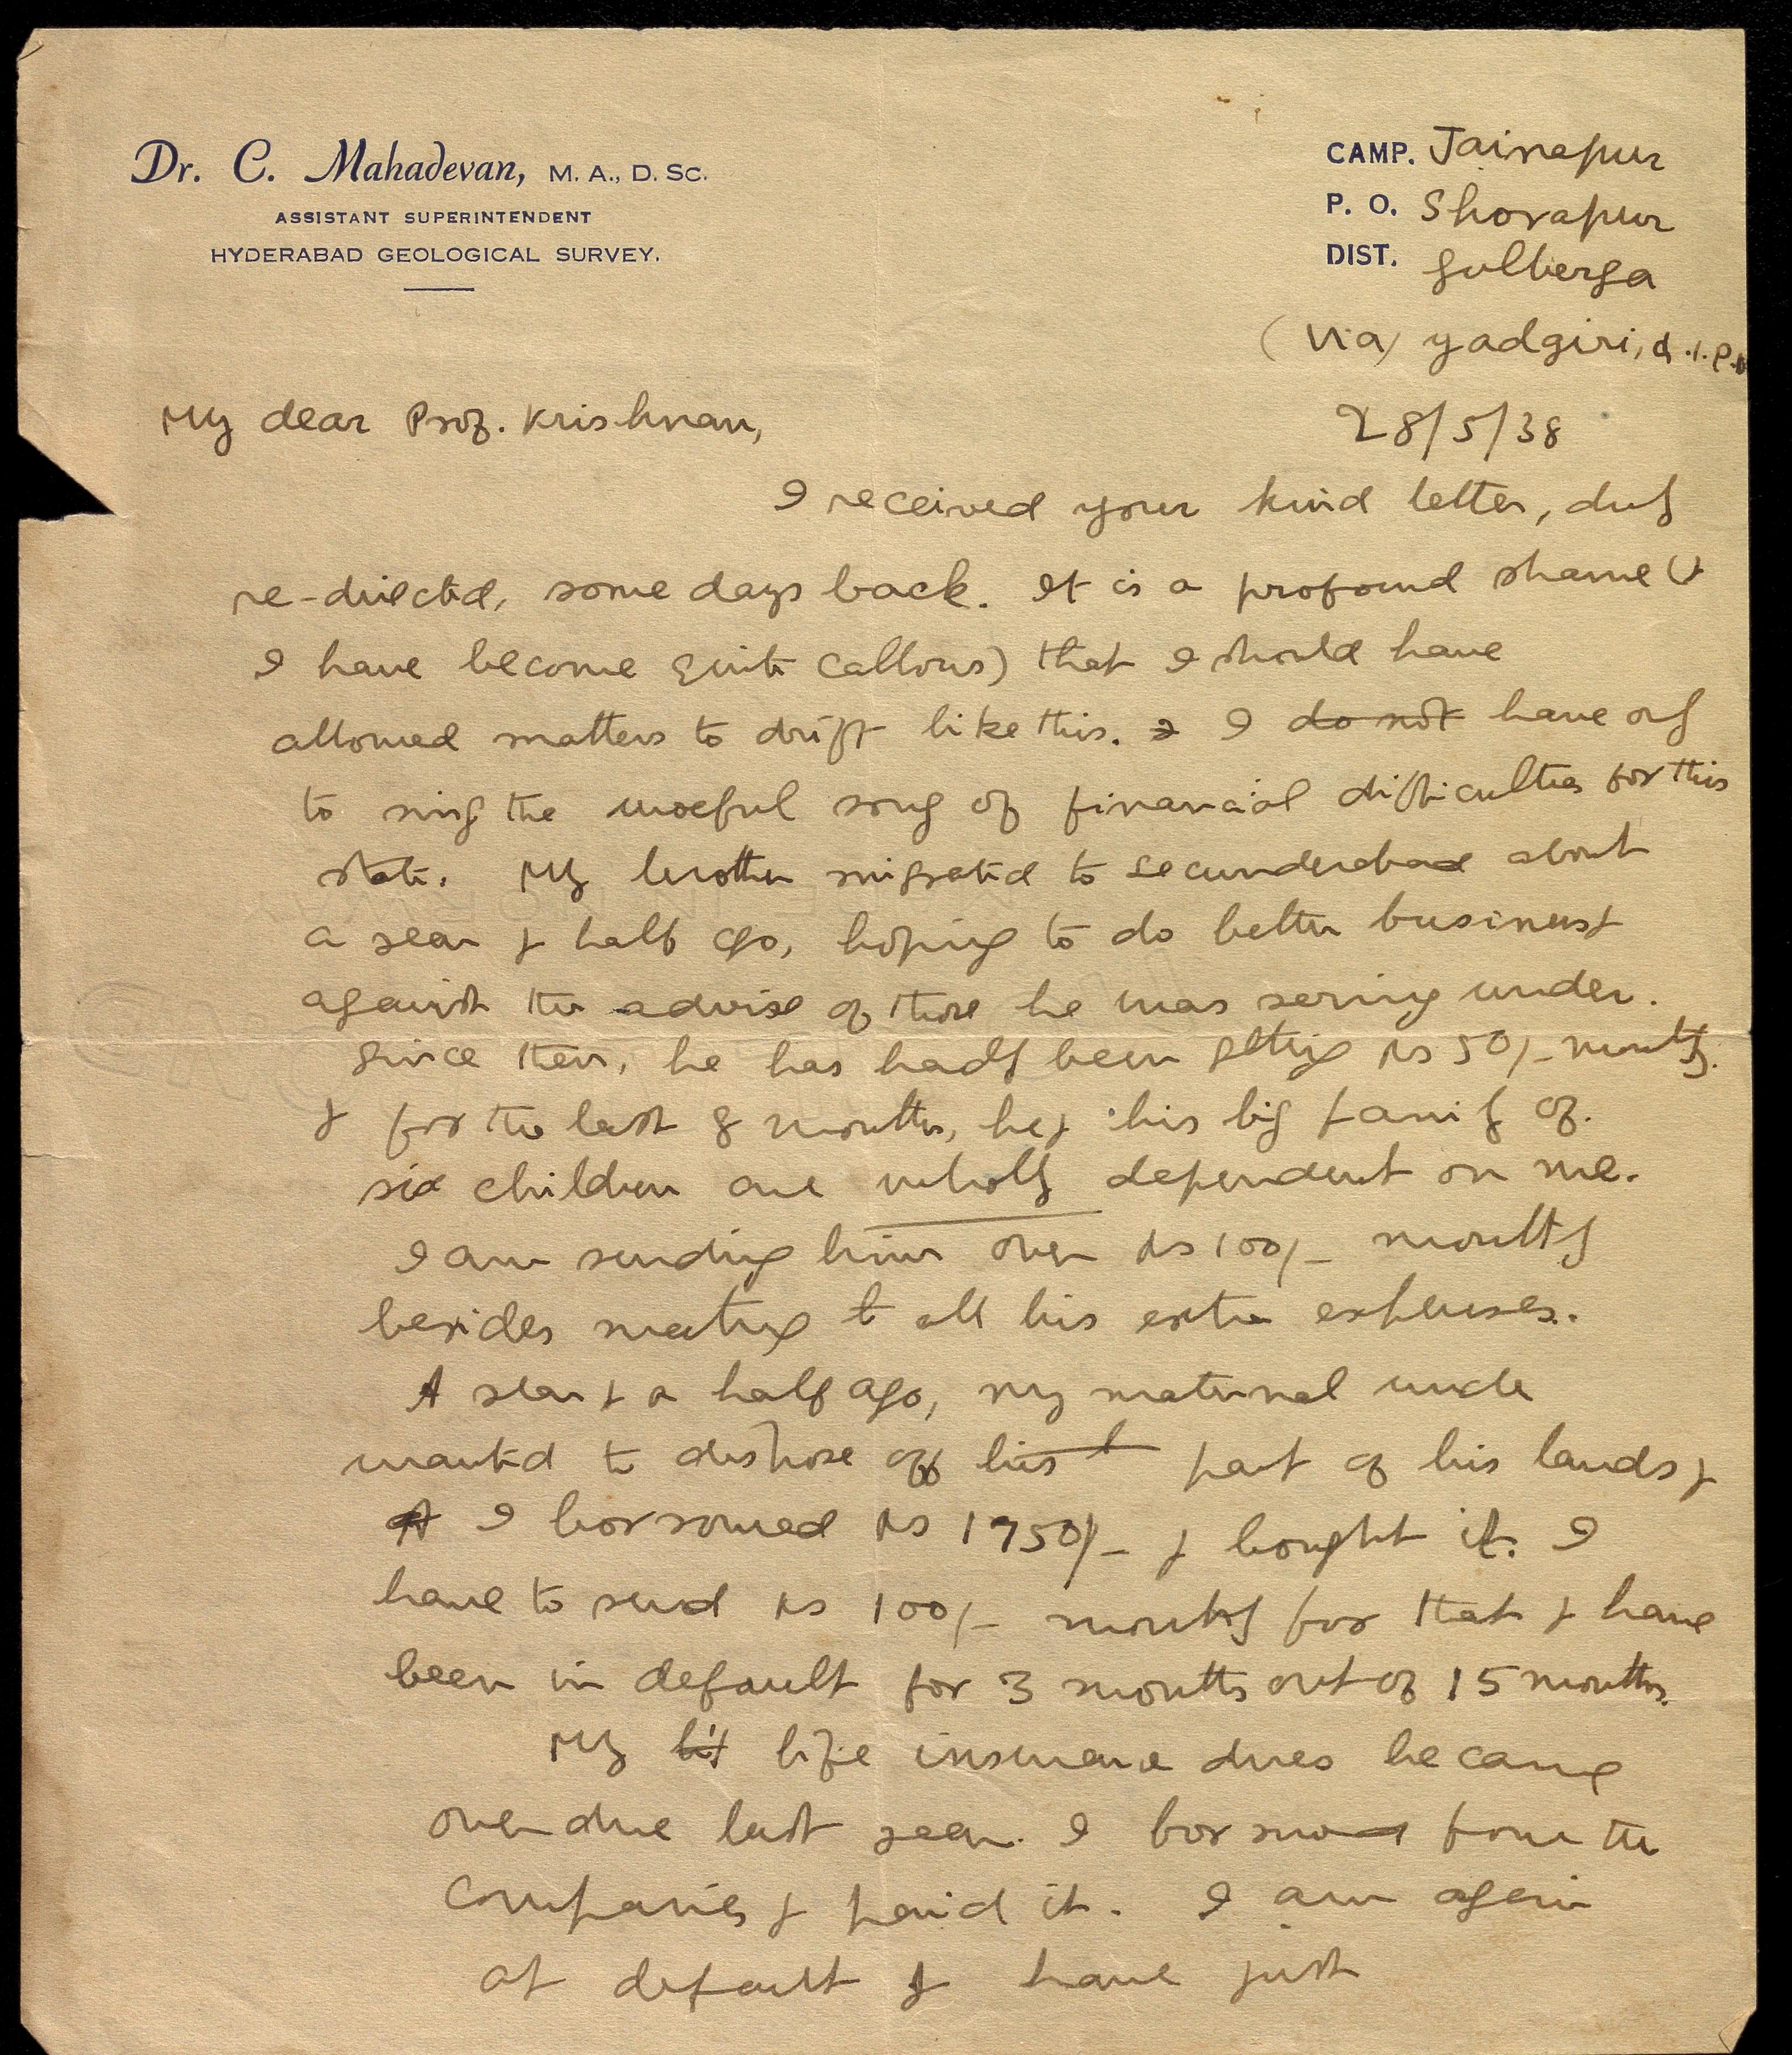 Dr. C. Mahadevan, M. A., D. Sc.
ASSISTANT SUPERINTENDENT
HYDERABAD GEOLOGICAL SURVEY.
CAMP. Jainapur
P. O. Shorapur
DIST. Gulberga
(Via) Yadgiri, G.I.P.R
28/5/38
My dear Prof. Krishnan,
I received your kind letter, duly
re-directed, some days back. It is a profound shame (&
I have become quite callous) that I should have
allowed matters to drift like this. I do not have only
to sing the woeful song of financial difficulties for this
state. My brother migrated to Secunderabad about
a year & half ago, hoping to do better business &
against the advise of those he was serving under.
Since then, he has hardly been getting Rs 50/- monthly.
& for the last 8 months, he & his big family of.
six children are wholly dependent on me.
I am sending him over Rs 100/- monthly
besides meeting to all his extra expenses.
A year & a half ago, my maternal uncle
wanted to dispose off his part of his lands &
I borrowed Rs 1750/- & bought it. I
have to send Rs 100/- monthly for that & have
been in default for 3 months out of 15 months.
My lif life insurance dues became
overdue last year. I borrowed from the
companies & paid it. I am again
at default & have just